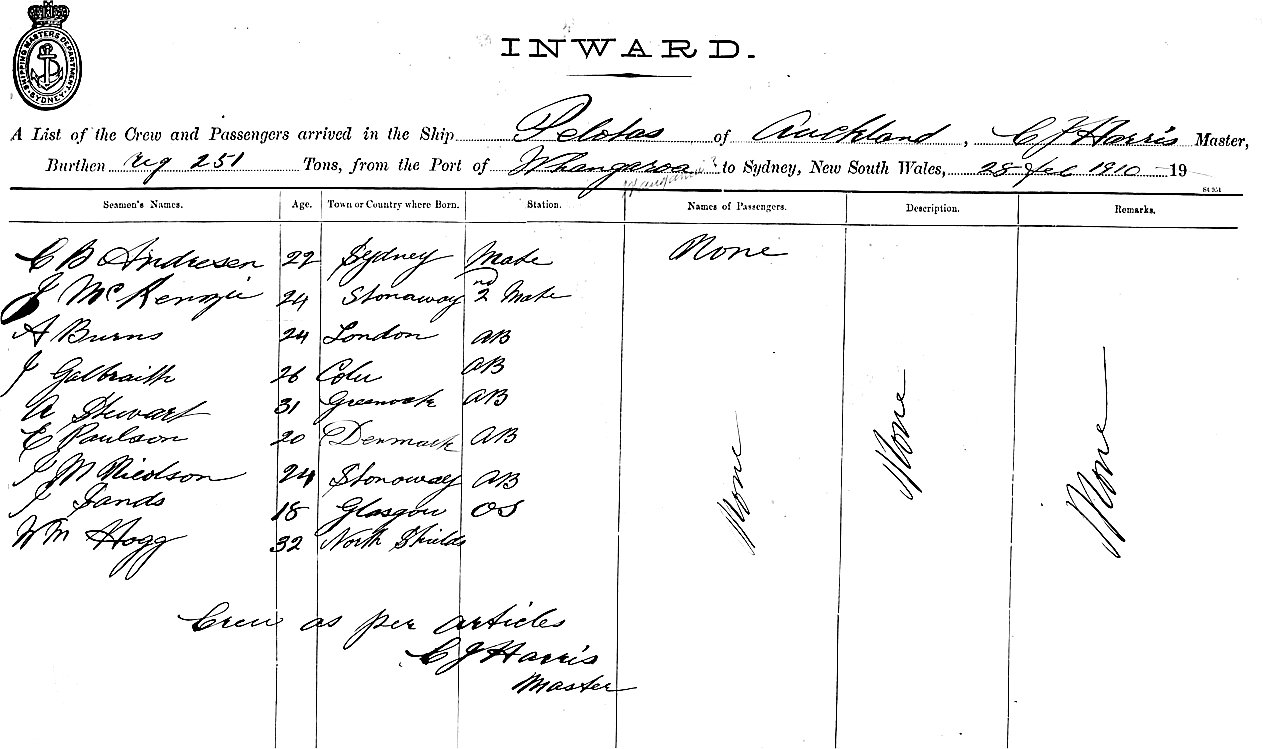 SHIPPING MASTERS DEPARTMENT
SYDNEY
INWARD.
A List of the Crew and Passengers arrived in the Ship Pelotas of Auckland, C J Harris Master,
Burthen reg 251 Tons, from the Port of Whangaroa to Sydney, New South Wales, 28 Feb 1910 19
Seamen's Names. Age. Town or Country where Born. Station. Names of Passengers. Description. Remarks.
C B Andresen 22 Sydney Mate None
J McKenzie 24 Stonaway 2nd Mate
A Burns 24 London AB
J Galbraith 26 AB
A Stewart 31 Greenock AB
E Paulson 20 Denmark AB
J M Nicolson 24 Stonaway AB
J Sands 18 Glasgow OS
Wm Hogg 32 North Shields
None
None
None
Crew as per articles
C J Harris
Master